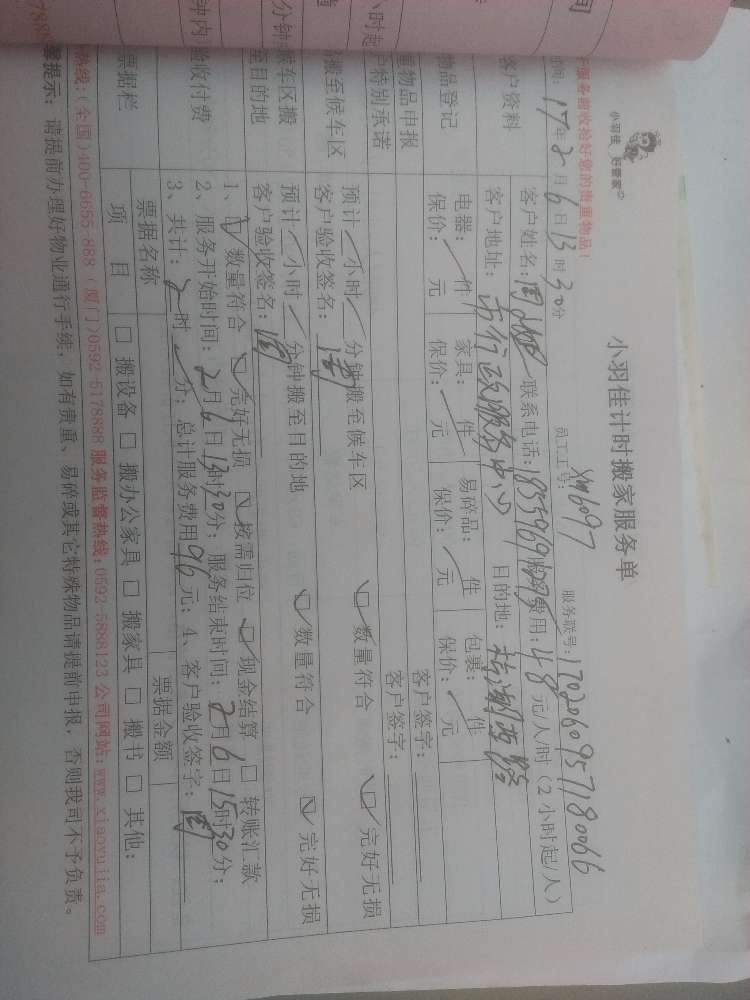 小羽佳 好管家
小羽佳计时搬家服务单
服务前收拾好您的贵重物品！
时间：17年2月6日13时30分 员工工号：xm6097 服务联号：1702060957180066
客户资料
客户姓名： 联系电话： 服务费用：48元/人/时（2小时起/人）
客户地址：市行政服务中心 目的地：
物品登记
电器：／件 家具：／件 易碎品：／件 包裹：／件
保价：／元 保价：／元 保价：／元 保价：／元
物品申报 客户签字：
户特别承诺 客户签字：
搬至候车区
预计／小时／分钟搬至候车区 ☑数量符合 ☑完好无损
客户验收签名：
分钟候车区搬
至目的地
预计／小时／分钟搬至目的地 ☑数量符合 ☑完好无损
客户验收签名：周
钟内验收付费
1、☑数量符合 ☑完好无损 ☑按需归位 ☑现金结算 □转账汇款
2、服务开始时间：2月6日13时30分；服务结束时间：2月6日15时30分；
3、共计：2时／分；总计服务费用96元；4、客户验收签字：周
票据栏
票据名称 票据金额
项目 □搬设备 □搬办公家具 □搬家具 □搬书 □其他：
热线：(全国)400-6655-888 (厦门)0592-5178888 服务监督热线：0592-5888123 公司网站：www.xiaoyujia.com
馨提示：请提前办理好物业通行手续，如有贵重、易碎或其它特殊物品请提前申报，否则我司不予负责。